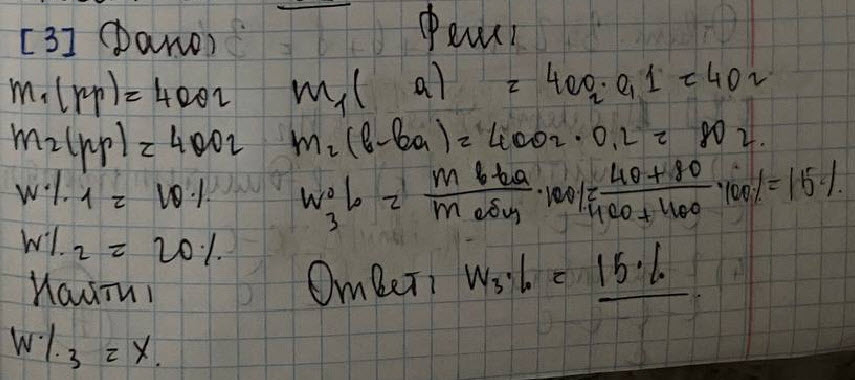 [3] Дано: Реш:
m₁(рр) = 400г m₁( а) = 400г · 0,1 = 40г
m₂(рр) = 400г m₂(в-ва) = 400г · 0,2 = 80г.
W%.1 = 10% W₃% = m в-ва / m общ · 100% = 40 + 80 / 400 + 400 · 100% = 15%.
W%.2 = 20%.
Найти: Ответ: W₃% = 15%.
W%.3 = x.